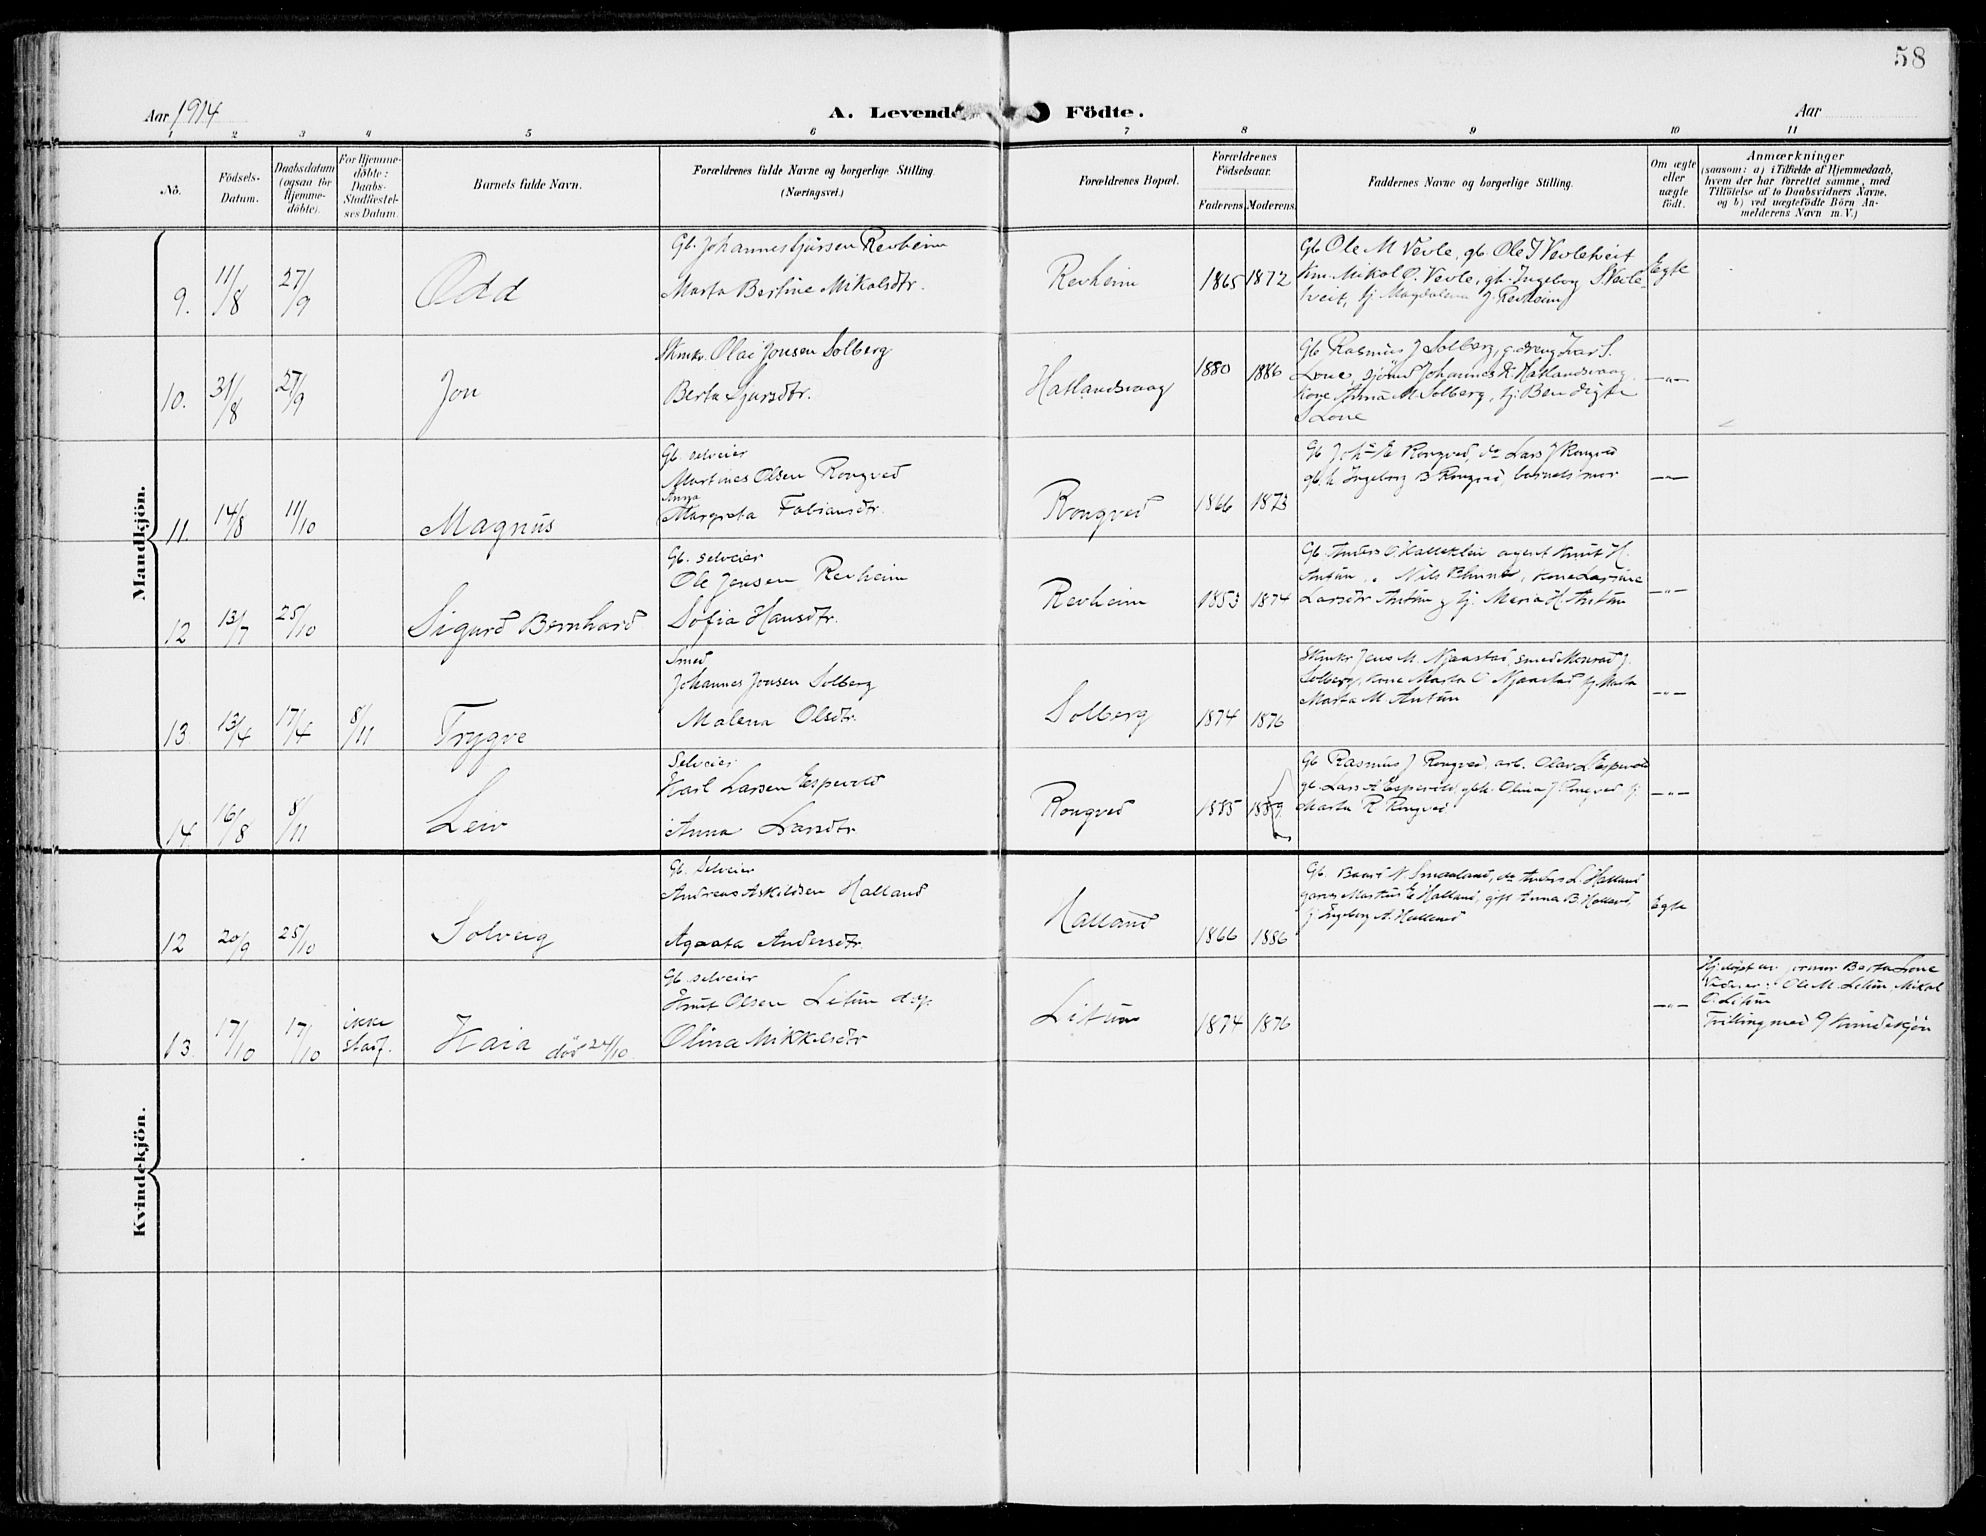 58
Aar 1914
A. Levende Födte.
Aar
1 2 3 4 5 6 7 8 9 10 11
No.
Födsels-Datum.
Daabsdatum (ogsaa for Hjemme-döbte).
For Hjemme-döbte: Daabs-Stadfæstel-ses Datum.
Barnets fulde Navn.
Forældrenes fulde Navne og borgerlige Stilling. (Næringsvei.)
Forældrenes Bopæl.
Forældrenes Födselsaar.
Faderens Moderens
Faddernes Navne og borgerlige Stilling.
Om ægte eller uægte födt.
Anmærkninger
(saasom: a) i Tilfælde af Hjemmedaab,
hvem der har forrettet samme, med
Tilföielse af to Daabsvidners Navne,
og b) ved uægtefödte Börn An-
melderens Navn m. V.)
Mandkjön.
9. 11/8 27/9 Odd
Gb. Johannes Revheim
Marta Bertine Mikalsdtr.
Revheim 1865 1872
Gb Ole M Vevle, gb. Ole J Vevletveit
Mikal O. Vevle, gk. Ingeborg S Vevle-
tveit, tj Magdalena J. Revheim
Egte
10. 31/8 27/9 Jon
Skmkr. Olai Jonsen Solberg
Berta Sjursdtr.
Hatlandsvaag 1880 1886
Gb Rasmus J Solberg, g.dreng Ivar S.
Lone, sjömd Johannes K. Hatlandsvaag
Kone Anna M. Solberg, tj. Bendigte
S Lone
—„—
11. 14/8 11/10 Magnus
Gb. selveier
Martines Olsen Rongved
Anna
Margreta Fabiansdtr.
Rongved 1866 1873
Gb Johs E Rongved, do Lars J Rongved
gb.k Ingeborg B Rongved, barnets mor
—„—
12 13/7 25/10 Sigurd Bernhard
Gb. selveier
Ole Jensen Revheim
Sofia Hansdtr.
Revheim 1853 1874
Gb. Anders O agent Knut H.
Antun, Nils Kone Larsine
Larsdtr Antun, tj. Maria H. Antun
—„—
13. 13/4 17/4 8/11 Trygve
Smed
Johannes Jonsen Solberg
Malena Olsdtr.
Solberg 1874 1876
Skmkr Jens M. Njaastad, smed Monrad J.
Solberg, kone Marta O Njaastad tj
Marta M. Antun
—„—
14. 16/8 8/11 Leiv
Selveier
Karl Larsen Espevold
Anna Larsdtr
Rongved 1885 1889
Gb Rasmus J Rongved, arb. Olav L Espevold
gb. Lars A Espevold, gbk. Olina J Rongved tj
Marta R Rongved.
—„—
Kvindekjön.
12 20/9 25/10 Solveig
Gb. selveier
Andreas Askildsen Halland
Agaata Andersdtr.
Halland 1866 1886
Gb. N Smaaland, do Anders L Halland
Martin E Halland, gift Anna B. Halland,
tj Ingeborg A. Halland
Egte
13. 17/10 17/10 ikke stadf. Kaia död 24/10.
Gb. selveier
Knut Olsen Litun
Olina Mikkelsdtr
Litun 1874 1876
—„—
Hj.døpt av Berta Lone
Vidner: Ole M. Litun, Mikal
O. Litun
Tvilling med 9 kvindekjön